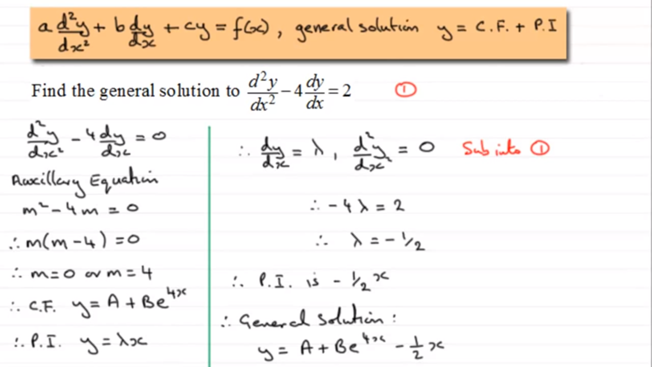 a d²y/dx² + b dy/dx + cy = f(x), general solution y = C.F. + P.I
Find the general solution to d²y/dx² − 4 dy/dx = 2 ①
d²y/dx² − 4 dy/dx = 0
Auxillary Equation
m² − 4m = 0
∴ m(m − 4) = 0
∴ m = 0 or m = 4
∴ C.F. y = A + Be^4x
∴ P.I. y = λx
∴ dy/dx = λ, d²y/dx² = 0 Sub into ①
∴ −4λ = 2
∴ λ = −1/2
∴ P.I. is −1/2 x
∴ General Solution:
y = A + Be^4x − 1/2 x